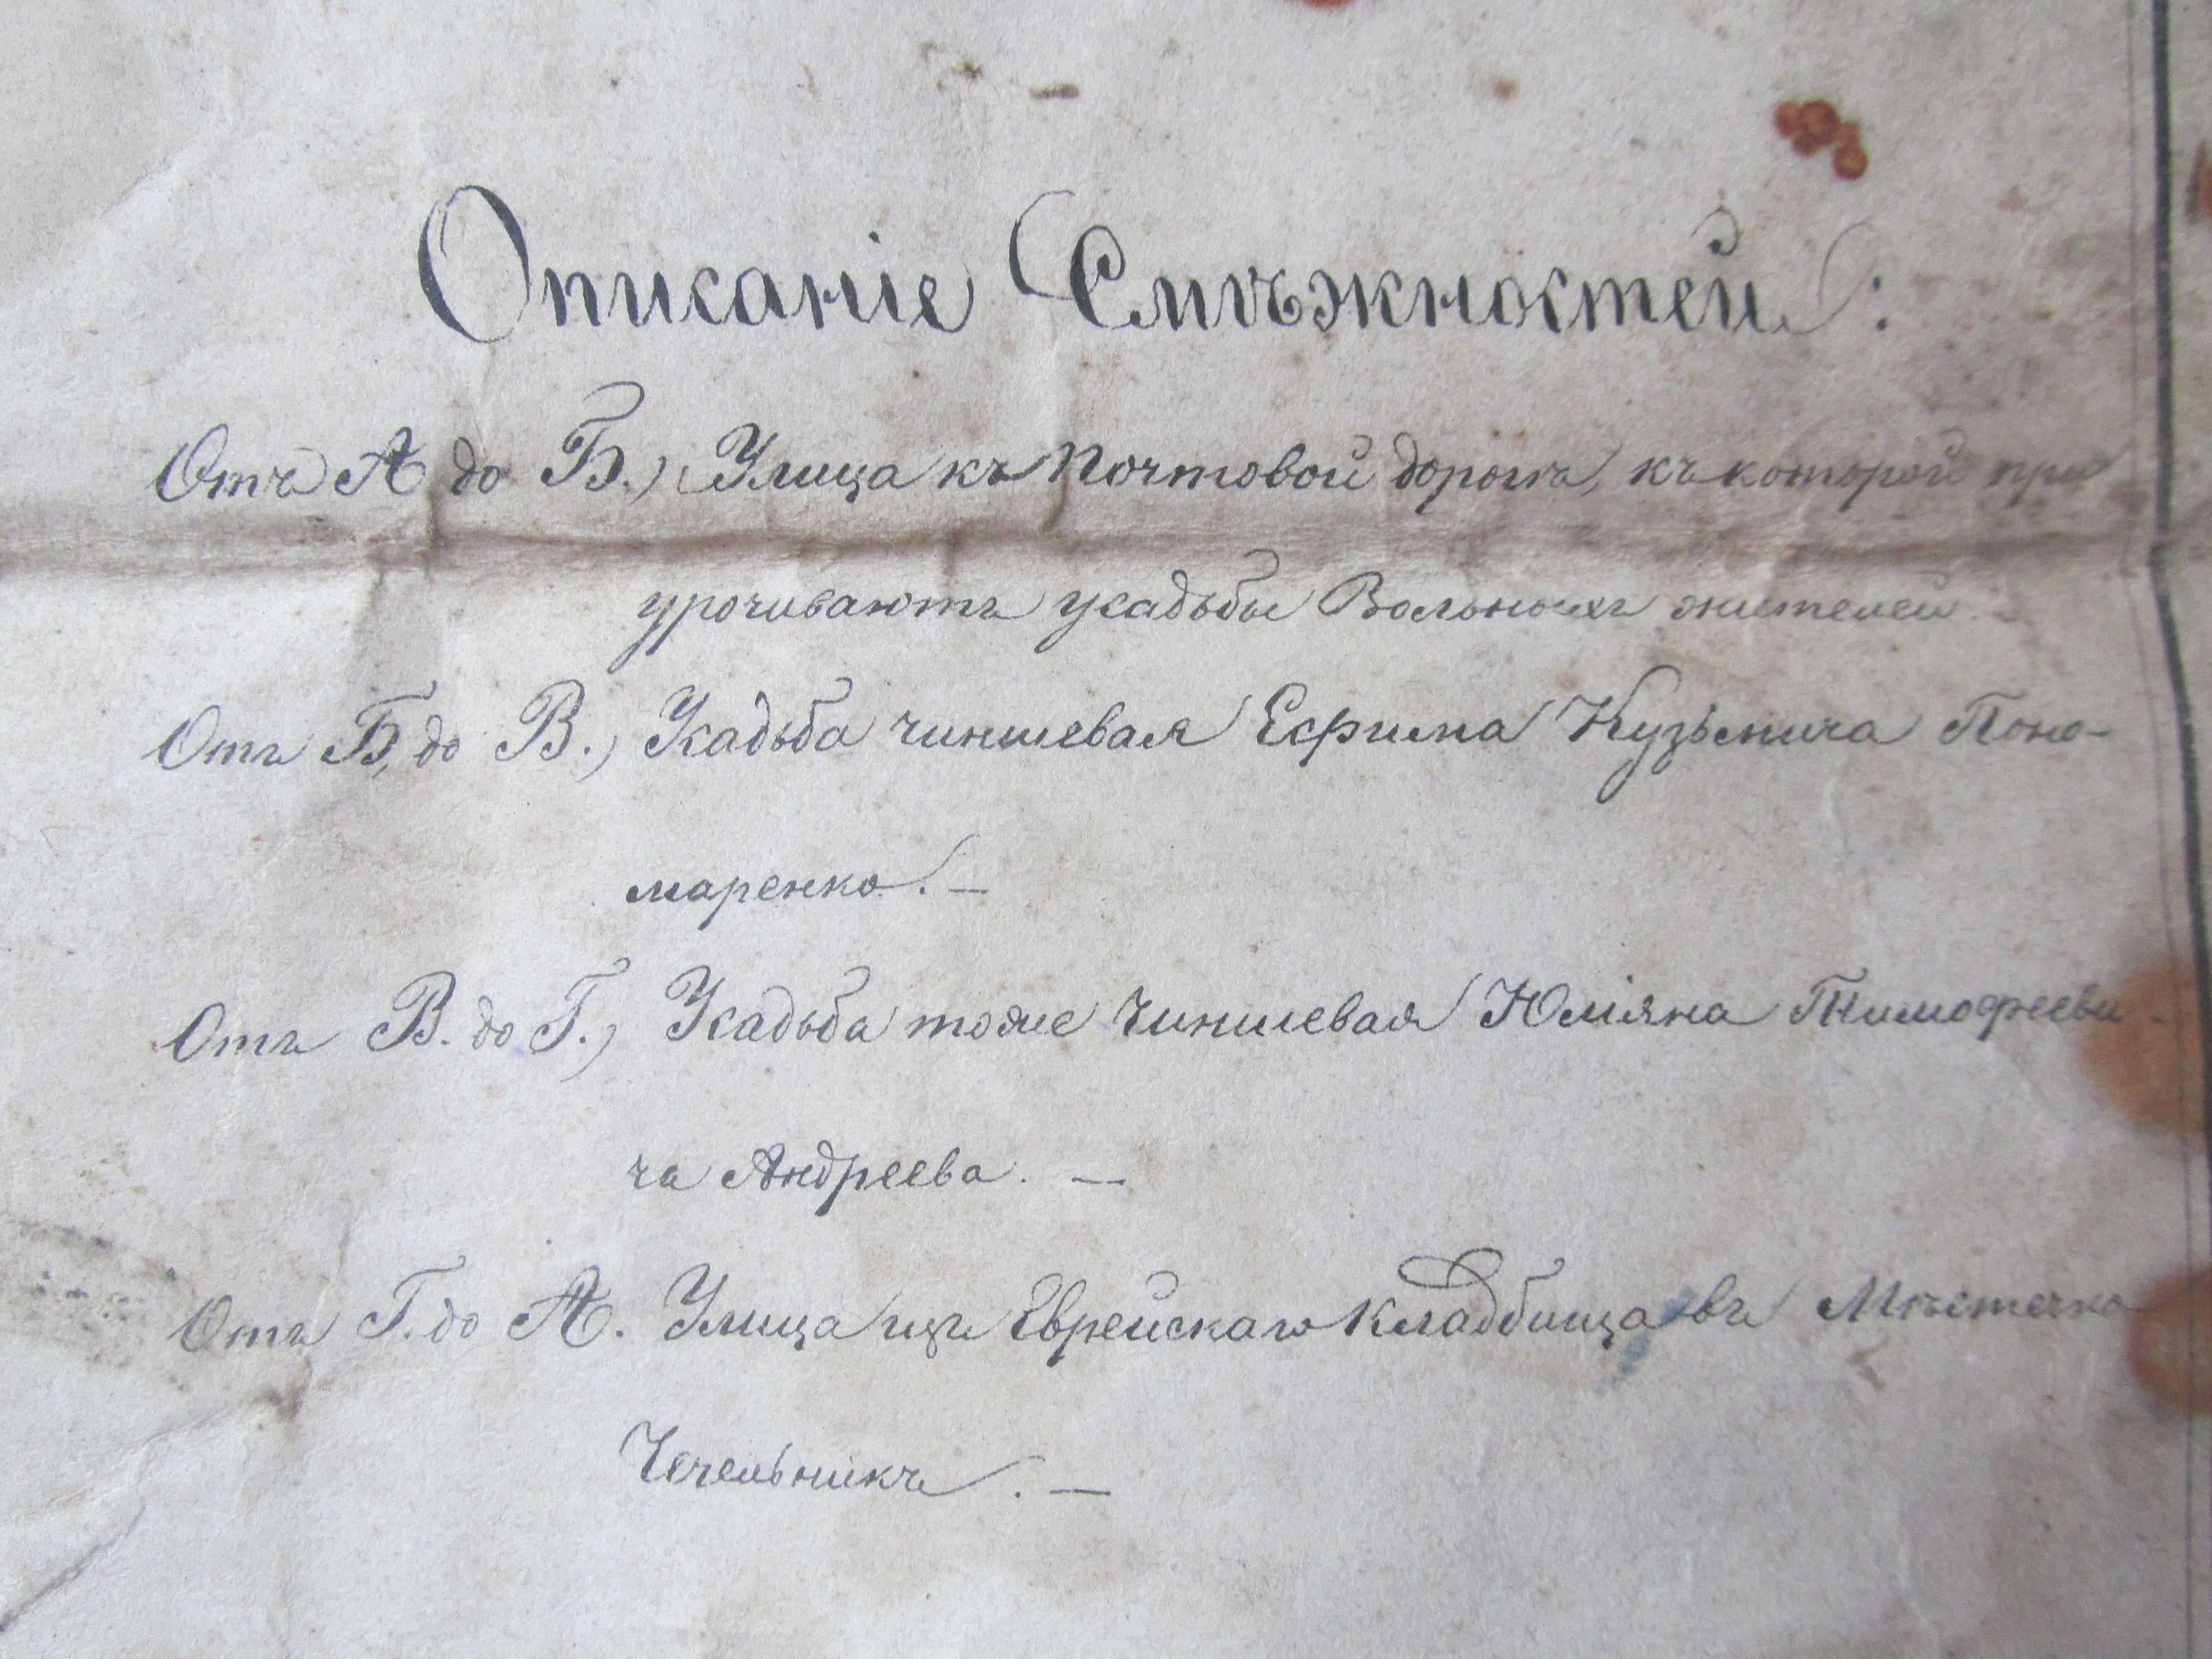 Описаніе Смѣжностей:
Отъ А до Б.) Улица къ Почтовой дорогѣ, къ которой при
урочиваютъ усадьбы Вольныхъ жителей.
Отъ Б, до В.) Усадьба чиншевая Ефима Кузьмича Поно-
маренко. —
Отъ В. до Г.) Усадьба тоже Чиншевая Юліяна Тимофееви-
ча Андреева. —
Отъ Г. до А. Улица изъ Еврейскаго Кладбища въ Мѣстечко
Чечельникъ. —